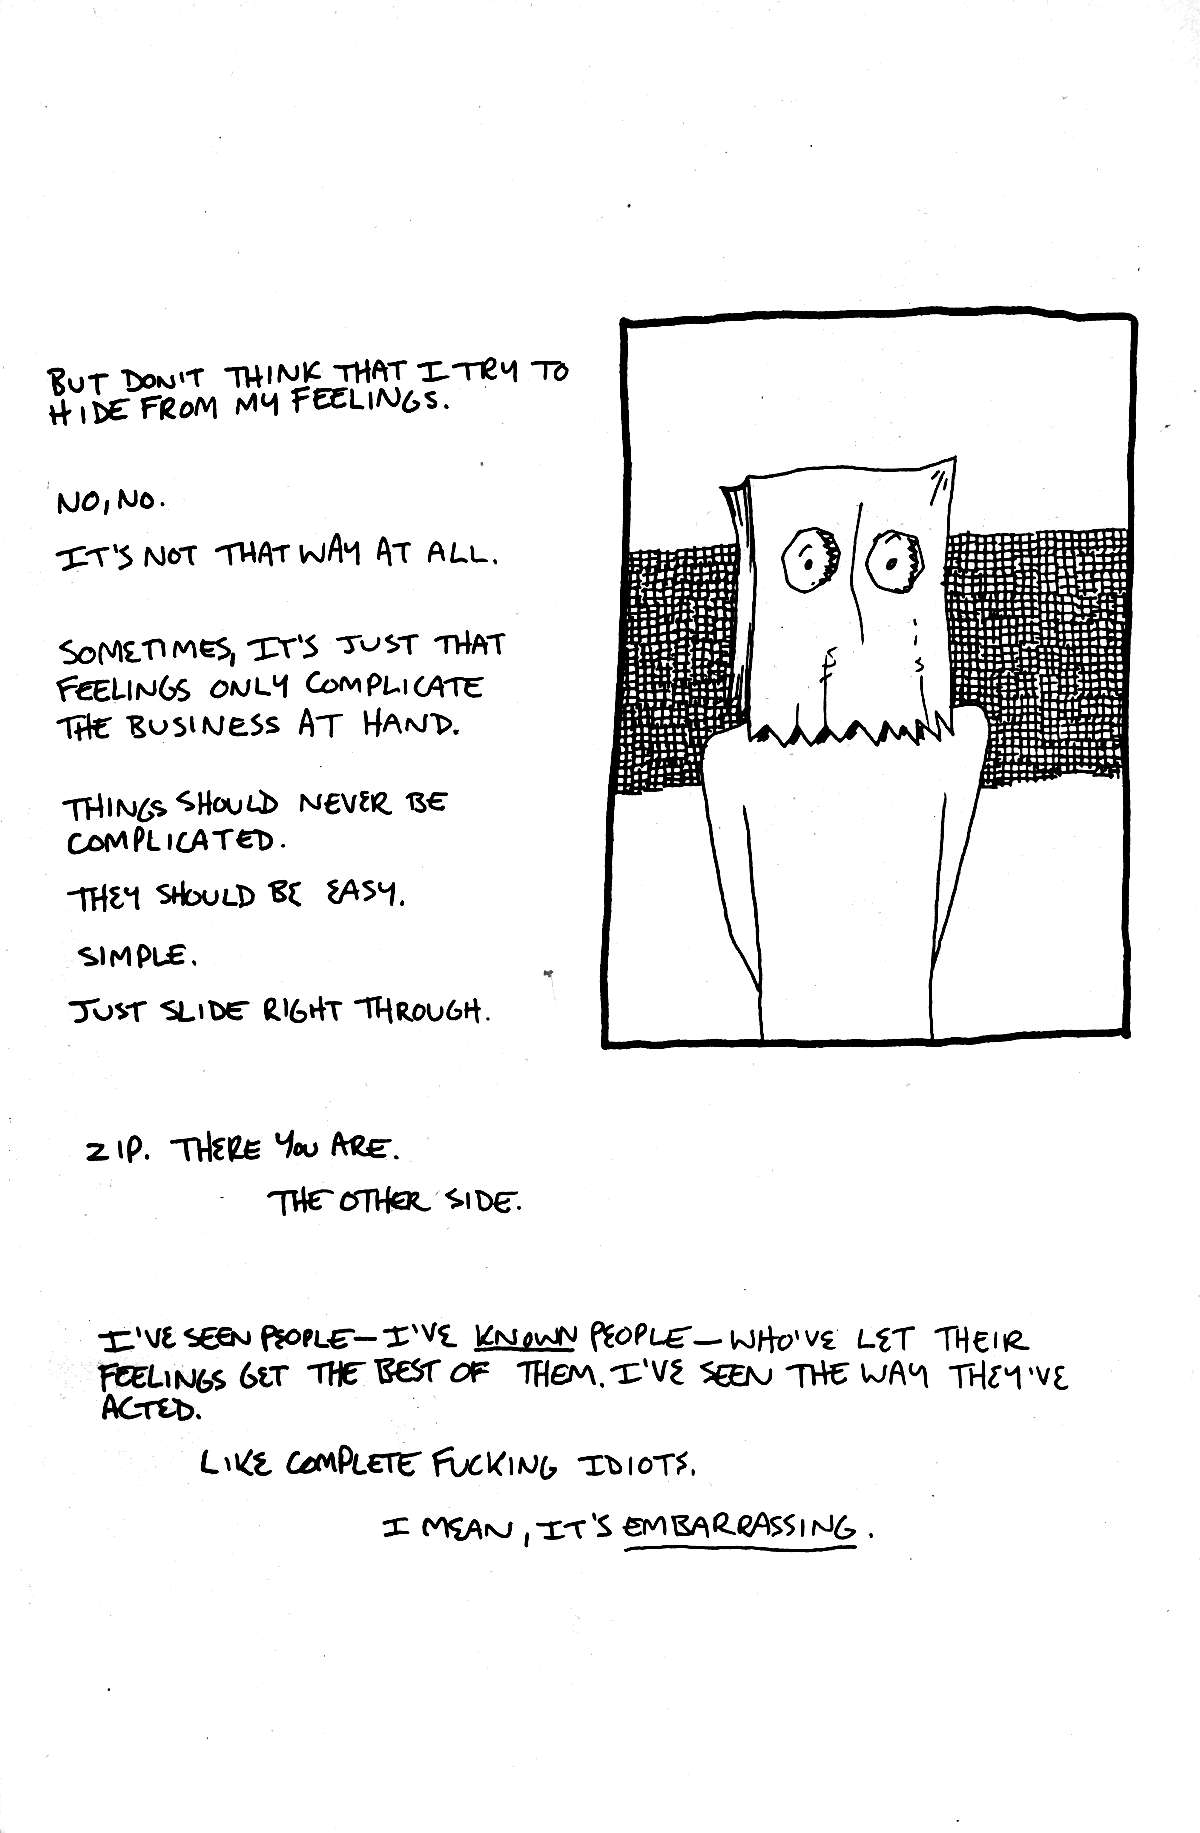 BUT DON'T THINK THAT I TRY TO
HIDE FROM MY FEELINGS.
NO, NO.
IT'S NOT THAT WAY AT ALL.
SOMETIMES, IT'S JUST THAT
FEELINGS ONLY COMPLICATE
THE BUSINESS AT HAND.
THINGS SHOULD NEVER BE
COMPLICATED.
THEY SHOULD BE EASY.
SIMPLE.
JUST SLIDE RIGHT THROUGH.
ZIP. THERE YOU ARE.
THE OTHER SIDE.
I'VE SEEN PEOPLE—I'VE KNOWN PEOPLE—WHO'VE LET THEIR
FEELINGS GET THE BEST OF THEM. I'VE SEEN THE WAY THEY'VE
ACTED.
LIKE COMPLETE FUCKING IDIOTS.
I MEAN, IT'S EMBARRASSING.